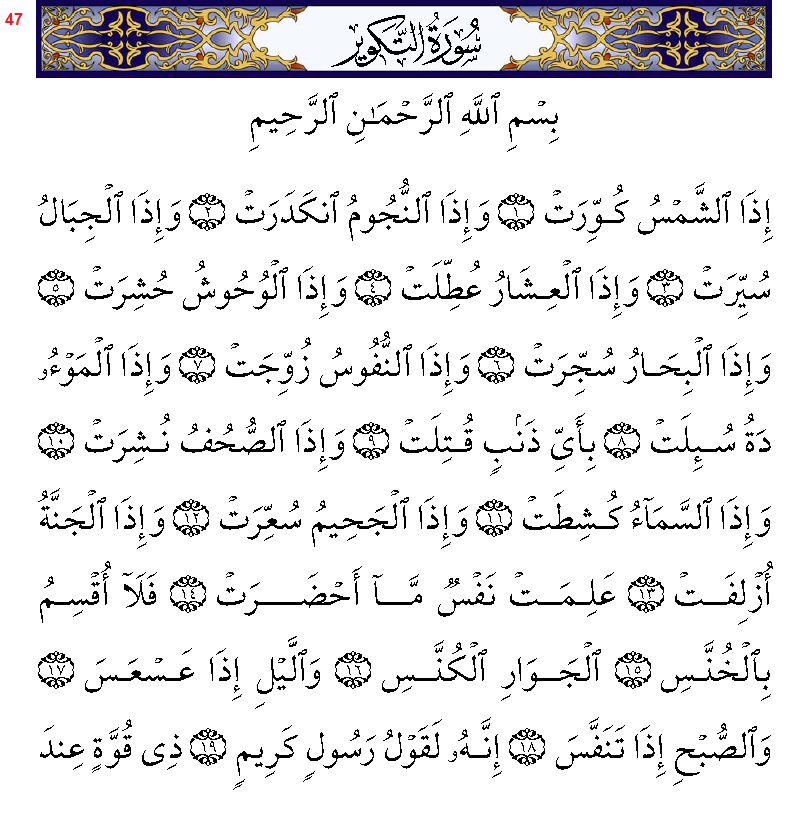 47
سُورَةُ التَّكْوِيرِ
بِسْمِ ٱللَّهِ ٱلرَّحْمَـٰنِ ٱلرَّحِيمِ
إِذَا ٱلشَّمْسُ كُوِّرَتْ ١ وَإِذَا ٱلنُّجُومُ ٱنكَدَرَتْ ٢ وَإِذَا ٱلْجِبَالُ
سُيِّرَتْ ٣ وَإِذَا ٱلْعِشَارُ عُطِّلَتْ ٤ وَإِذَا ٱلْوُحُوشُ حُشِرَتْ ٥
وَإِذَا ٱلْبِحَارُ سُجِّرَتْ ٦ وَإِذَا ٱلنُّفُوسُ زُوِّجَتْ ٧ وَإِذَا ٱلْمَوْءُۥ
دَةُ سُئِلَتْ ٨ بِأَىِّ ذَنۢبٍ قُتِلَتْ ٩ وَإِذَا ٱلصُّحُفُ نُشِرَتْ ١٠
وَإِذَا ٱلسَّمَآءُ كُشِطَتْ ١١ وَإِذَا ٱلْجَحِيمُ سُعِّرَتْ ١٢ وَإِذَا ٱلْجَنَّةُ
أُزْلِفَتْ ١٣ عَلِمَتْ نَفْسٌ مَّآ أَحْضَرَتْ ١٤ فَلَآ أُقْسِمُ
بِٱلْخُنَّسِ ١٥ ٱلْجَوَارِ ٱلْكُنَّسِ ١٦ وَٱلَّيْلِ إِذَا عَسْعَسَ ١٧
وَٱلصُّبْحِ إِذَا تَنَفَّسَ ١٨ إِنَّهُۥ لَقَوْلُ رَسُولٍ كَرِيمٍ ١٩ ذِى قُوَّةٍ عِندَ